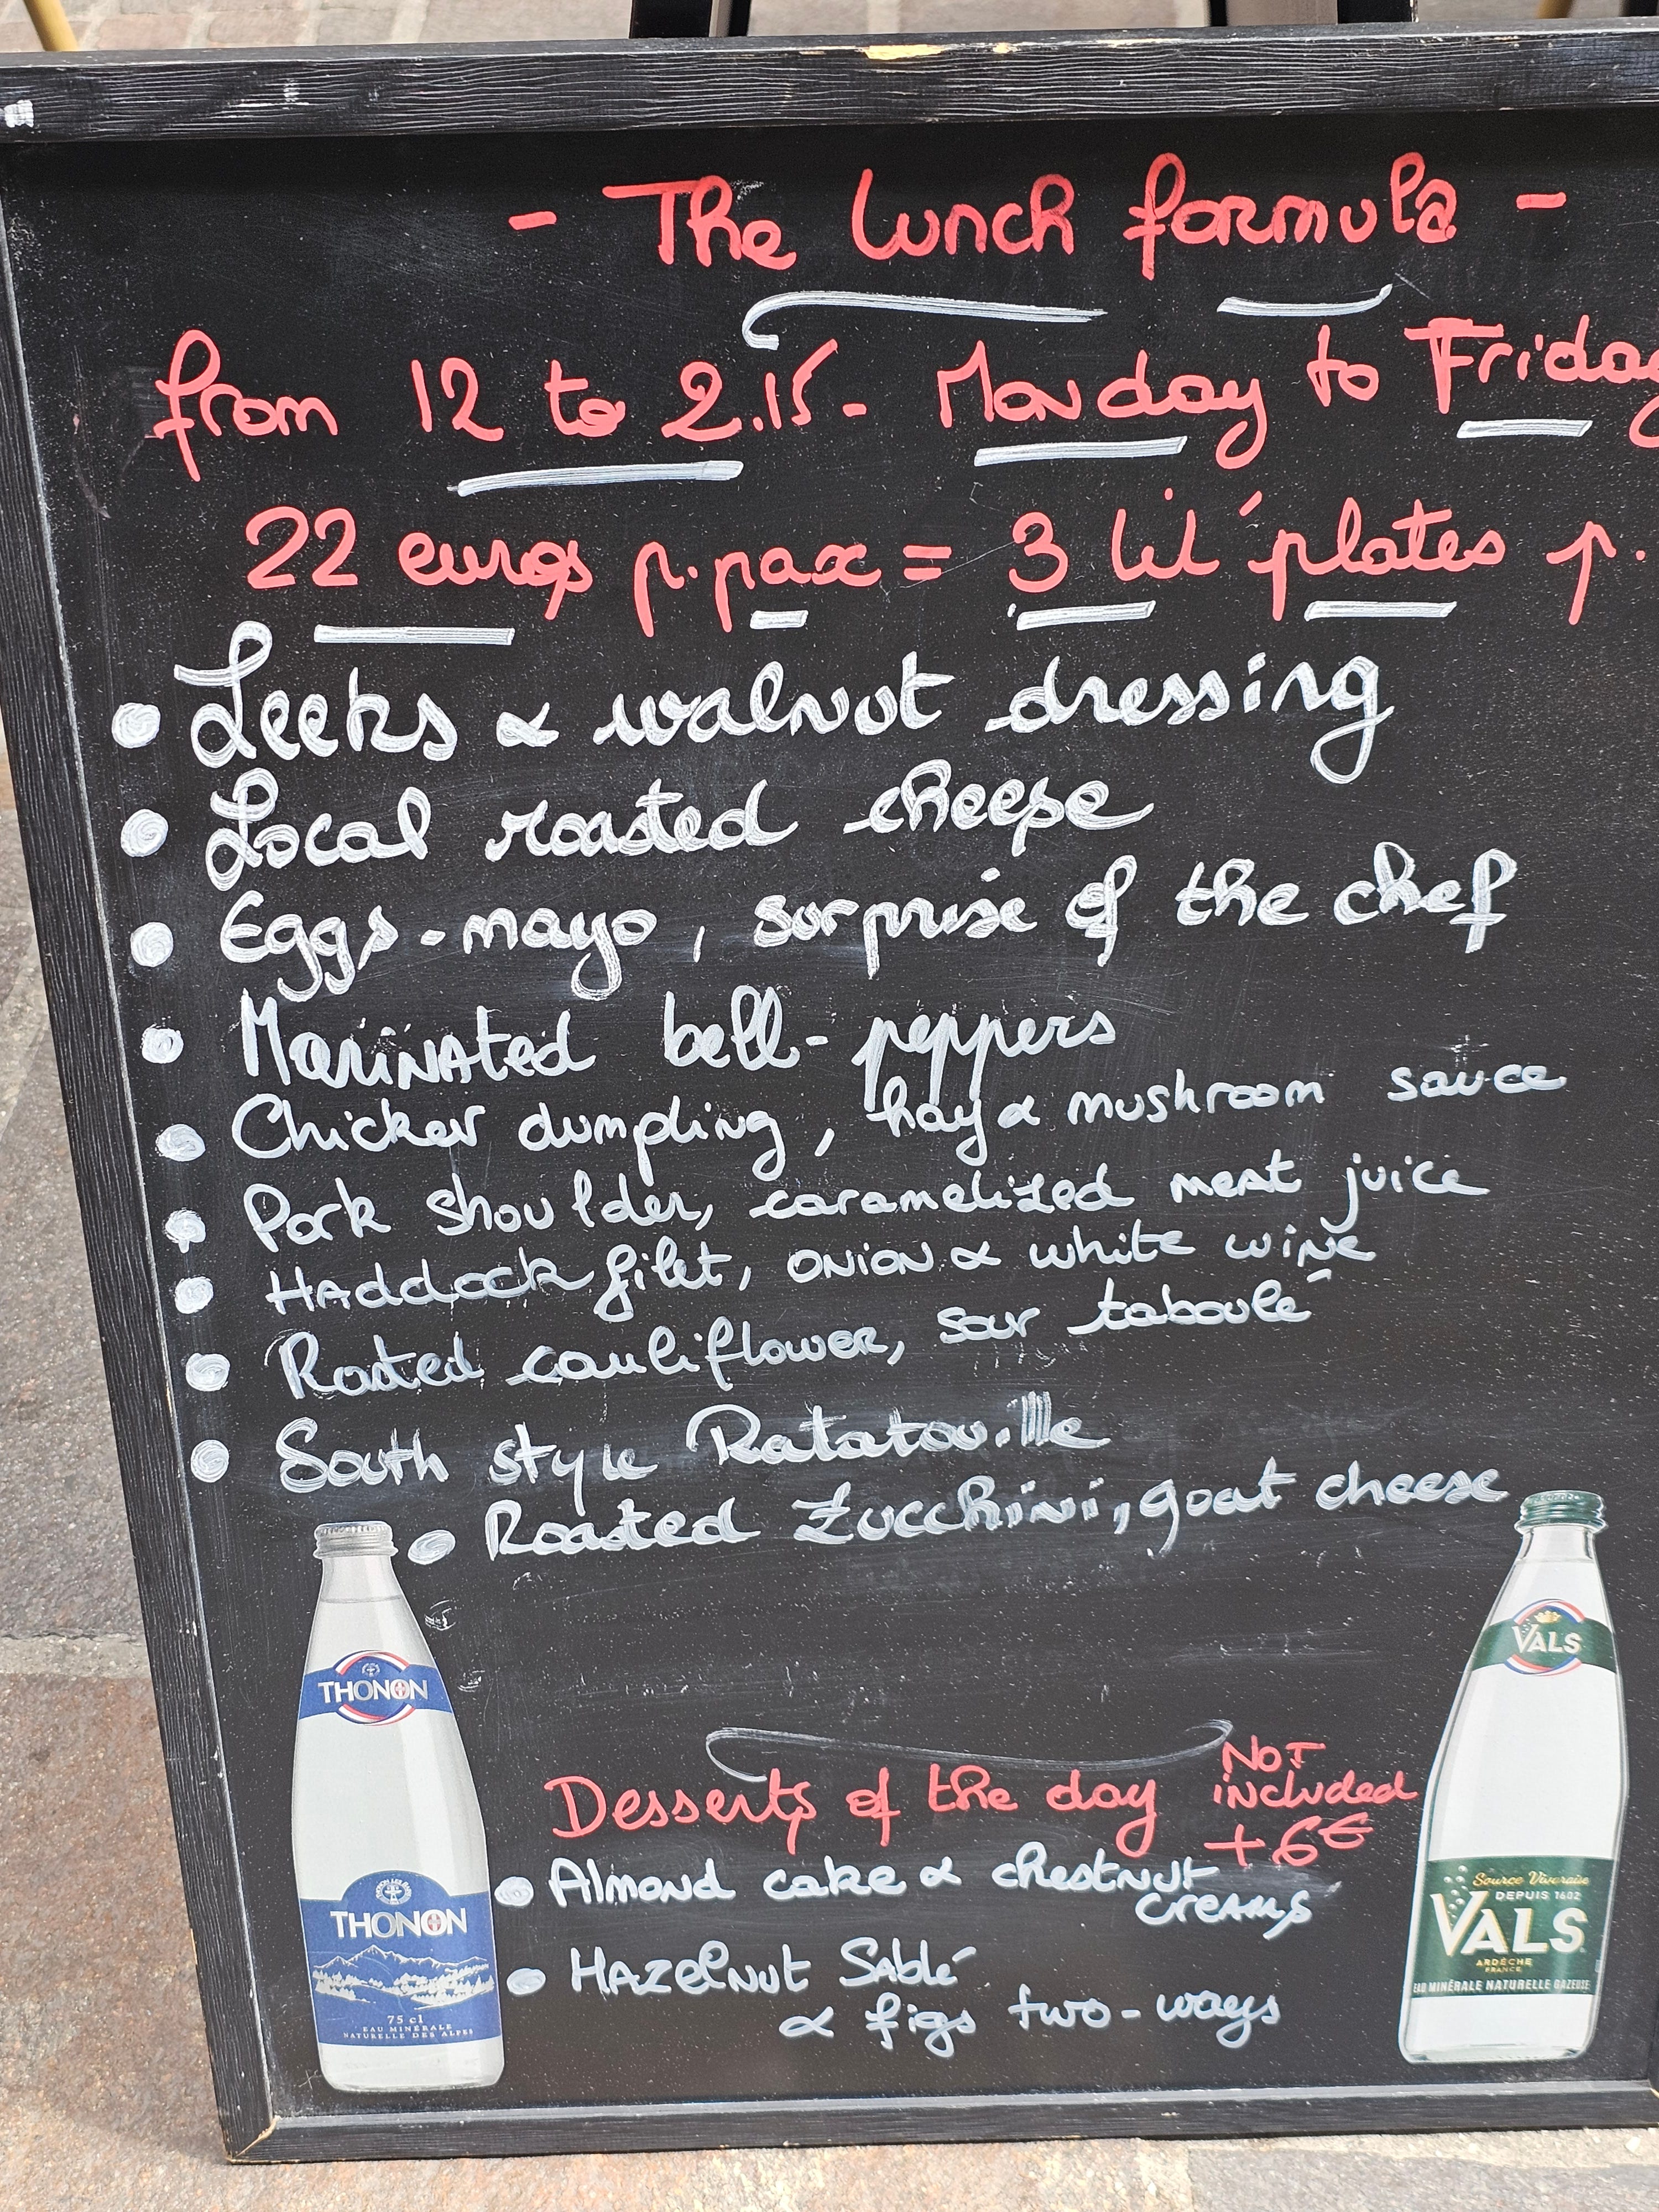 - The lunch formula -
from 12 to 2.15 - Monday to Friday
22 euros p.pax = 3 lil' plates p.
• Leeks & walnut dressing
• Local roasted cheese
• Eggs-mayo, surprise of the chef
• Marinated bell-peppers
• Chicken dumpling, hay & mushroom sauce
• Pork shoulder, caramelized meat juice
• Haddock filet, onion & white wine
• Roasted cauliflower, sour taboulé
• South style Ratatouille
• Roasted Zucchini, goat cheese
THONON
VALS
Desserts of the day NOT included +6€
• Almond cake & chestnut creams
• Hazelnut Sablé
& figs two-ways
THONON
75 cl
EAU MINÉRALE
NATURELLE DES ALPES
Source Vivaraise
DEPUIS 1602
VALS
ARDÈCHE
FRANCE
EAU MINÉRALE NATURELLE GAZEUSE